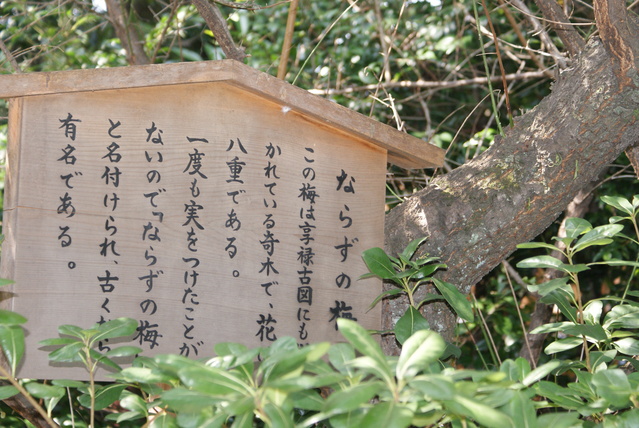 ならずの梅
この梅は享禄古図にも
かれている奇木で、花
八重である。
一度も実をつけたことが
ないので「ならずの梅
と名付けられ、古くから
有名である。